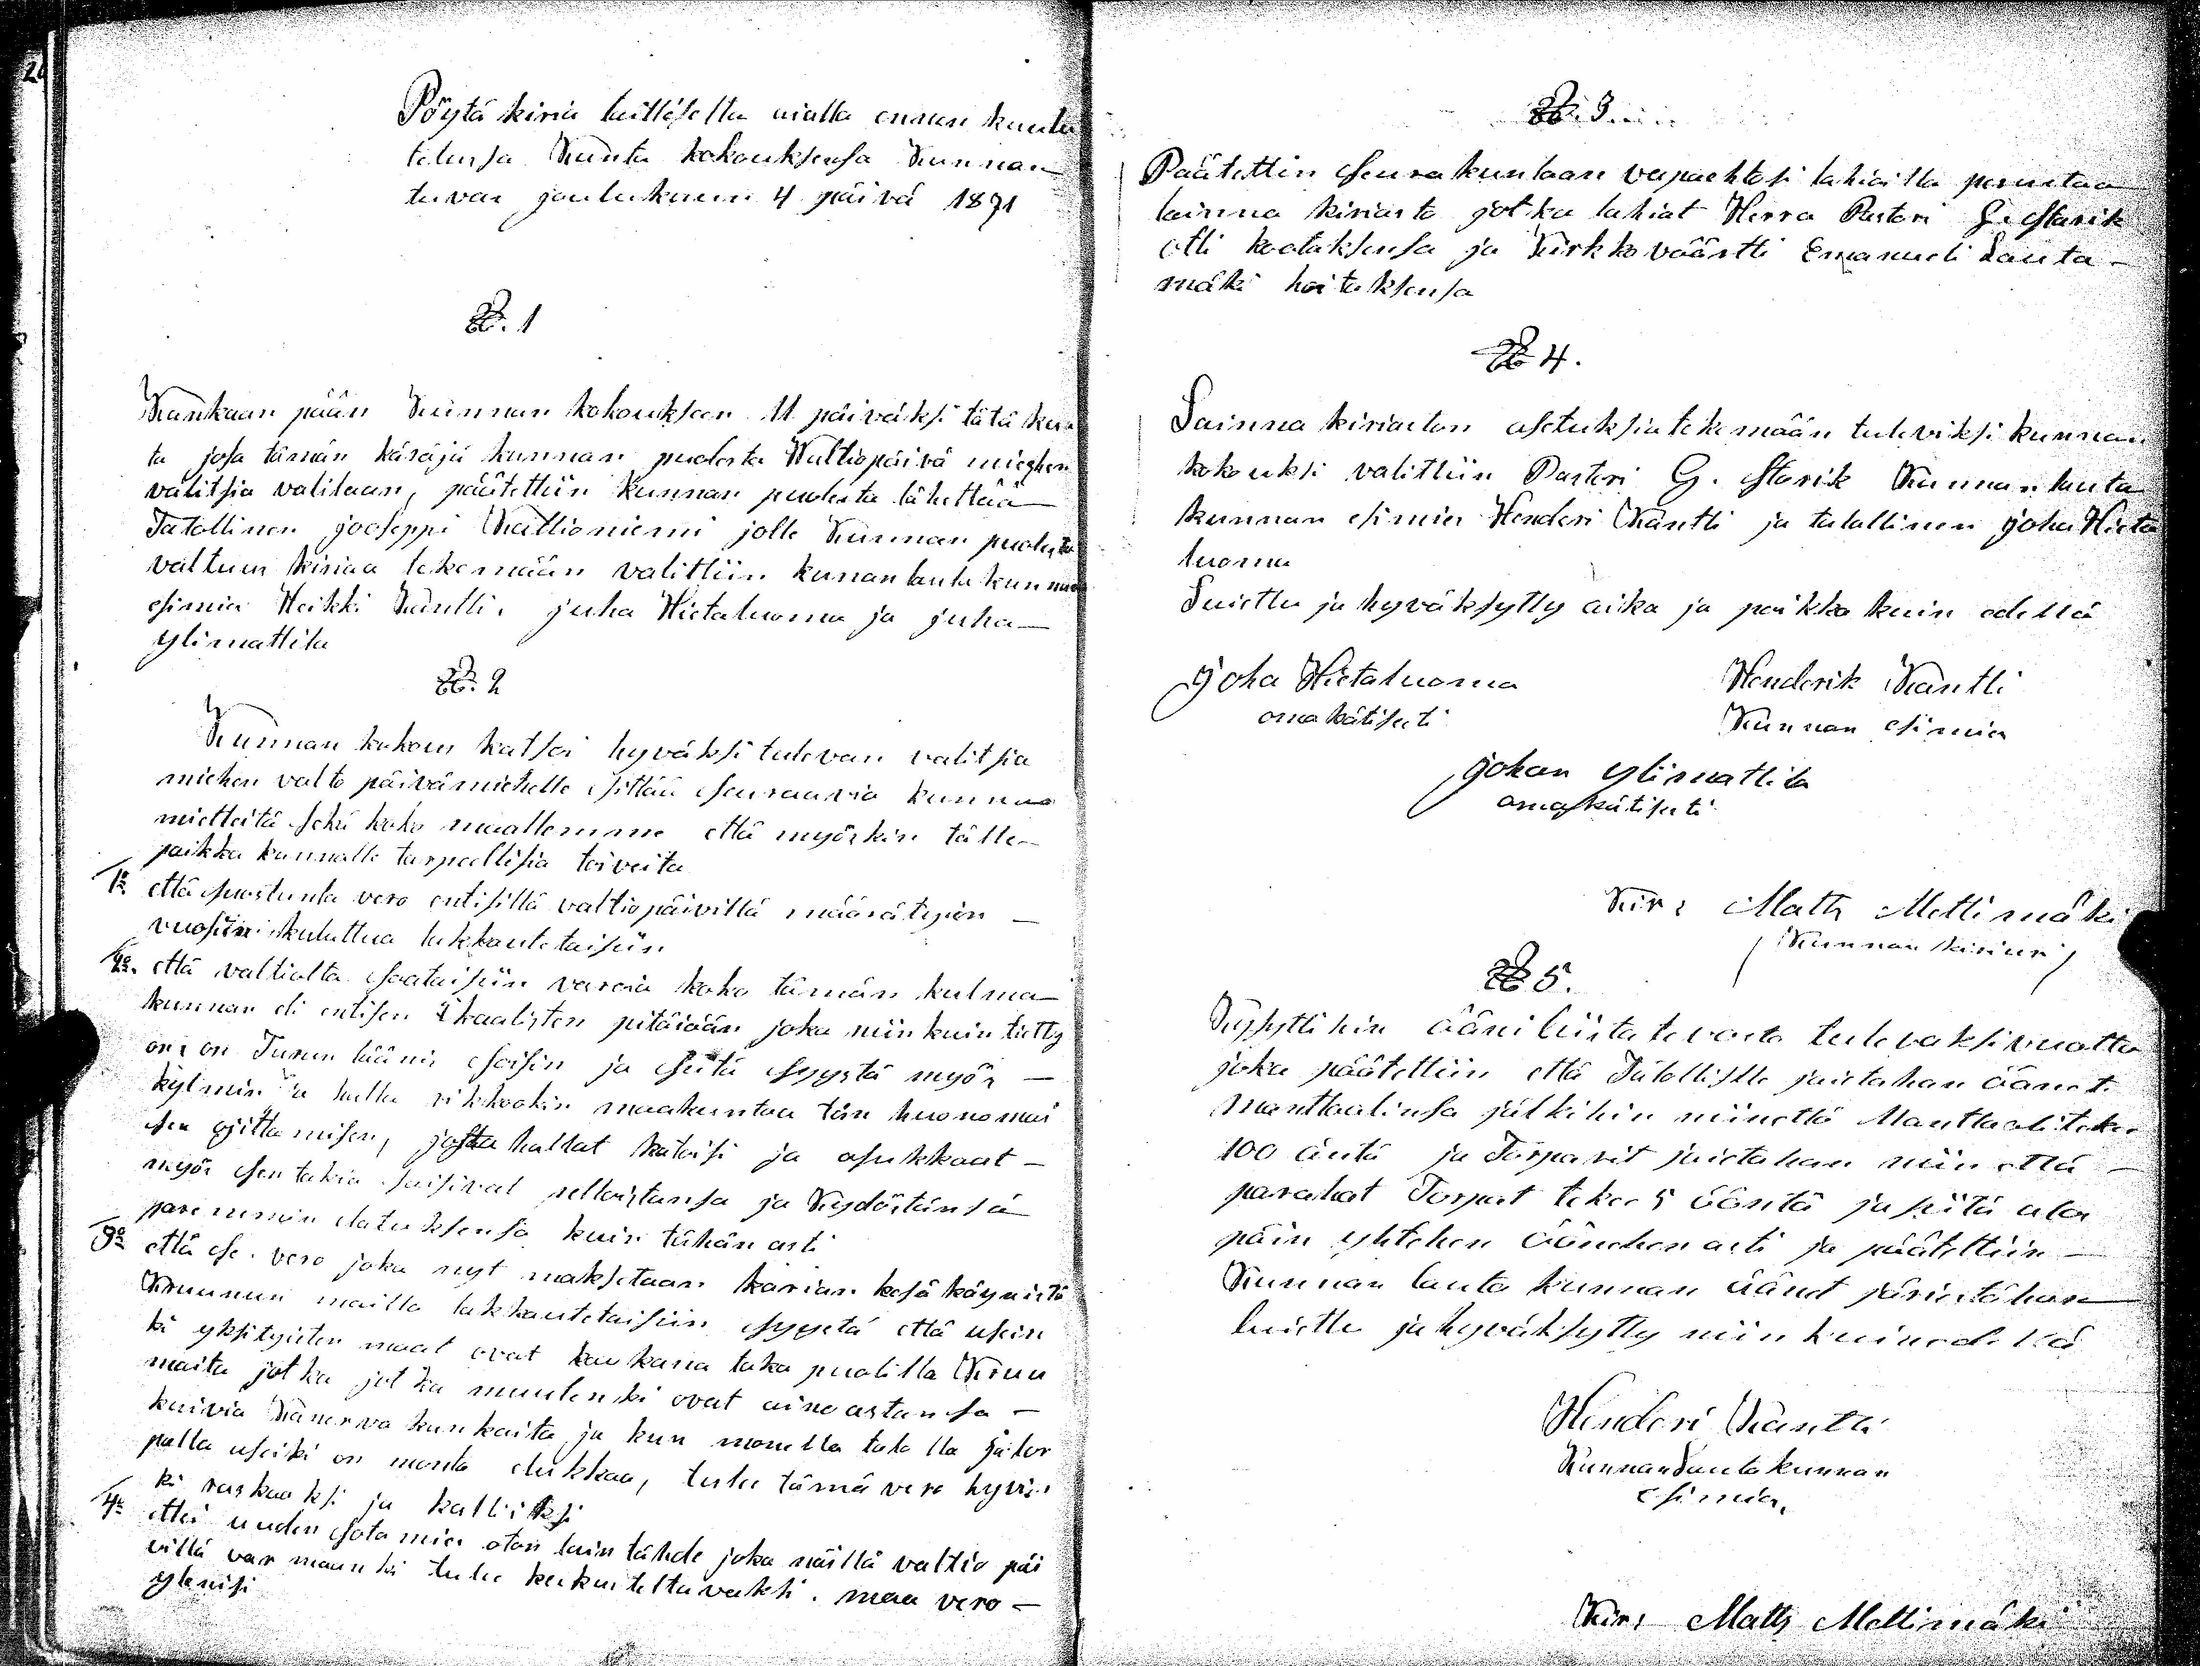 Pöytä kiria laillisella aialla ennen kuulu
tetussa Kunta kokouksensa Kunnan
tuvas joulukuun 4 päivä 1871
§. 1
Kankaan pään Kunnan kokouksen 11 päiväksi tätä kuu
ta josa tämän käräjä kunnan puolesta Waltiopäivä miehen
valitsia valitaan, päätettiin kunnan puolesta lähettää
Talollinen jooseppi Kalliomiemi jolle Kunnan puolesta
valtuus kiriaa tekemään valittiin kunan lauta kunnan
esimies Heikki Käntti. juha Hietaluoma ja juha
ylimattila
§. 2
Kunnan kokous katsoi hyväksi tulevan valitsia
miehen valto päivämiehelle esittää seuraavia kunnan
mietteitä sekä koko maallemme että myöskin tälle
paikka kunnalle tarpeellisia toiveita
1o että suostunta vero entisillä valtiopäivillä määrätyien
vuosiin kuluttua lakkautetaisiin
2o. että valtialta saataisiin varoia koko tämän kulma
kunnan eli entisen ikaalisten pitäiään joka niin kuin tietty
on, on Turun lääniä soisin ja siitä syystä myös
kylmin ja halla rikkookin maakuntaa tän huonomai
sen ojittamisen, josta hallat katoisi ja asukkaat
myös sen takia saisivat pelloistansa ja Niydöstänsä
paremmin elatuksensa kuin tähän asti
3o että se. vero joka nyt maksetaan karian kesä käynistä
Kruunun mailla lakkautetaisiin syystä että usein
ki yksityisten maat ovat kaukana taka puolilla Kruu
maita jotka jotka muutenki ovat ainoastansa
kuivia Kanerva kankaita, ja kun monella talolla ja tor
palla useiki on monta elukkaa, tulee tämä vero hyvin
ki raskaaksi ja kalliiksi
4o ettei uuden sota mies oton lain tähde joka näillä valtio päi
villä var maanki tulee keskusteltavaksi. maa vero
ylenisi
§. 3.
Päätettin seurakuntaan vapaehtosi lahioilla perustaa
lainna kiriasto jotka lahiat Herra Pastori G. Starik
otti kootaksensa ja Kirkkoväärtti Emanueli Lauta
mäki hoitaksensa
§ 4.
Lainna kiriaston asetuksia tekemään tuleviksi kunnan
kokouksi valittiin Pastori G. Starik Kunnan lauta
kunnan esimies Henderi Käntti ja talallinen joha Hieta
luoma
Luettu ja hyväksytty aika ja paikka kuin edellä
Joha Hietaluoma
omakätisesti
Henderik Käntti
Kunnan esimies
johan ylimattila
omakätisesti
Kirs Matts Mettimäki
(Kunnan kirinri)
§ 5.
Kysyttihin ääni liista tevasta tulevaksi vuotta
joka päätettiin että Talollisille juetahan äänet
Manttaalinsa jälkihin niinettä Manttaali tekee
100 äntä ja Torparit juetahan niin että
parahat Torpat tekee 5 ääntä ja siitä alas
päin yhtehen äänehen asti ja päätettiin
Kunnan lauta kunnan äänet järiestähän
luettu ja hyväksytty niin kuin edellä
Henderi Käntti
Kunnan Lautakunnan
esimies,
Kirs Matts Mettimäki